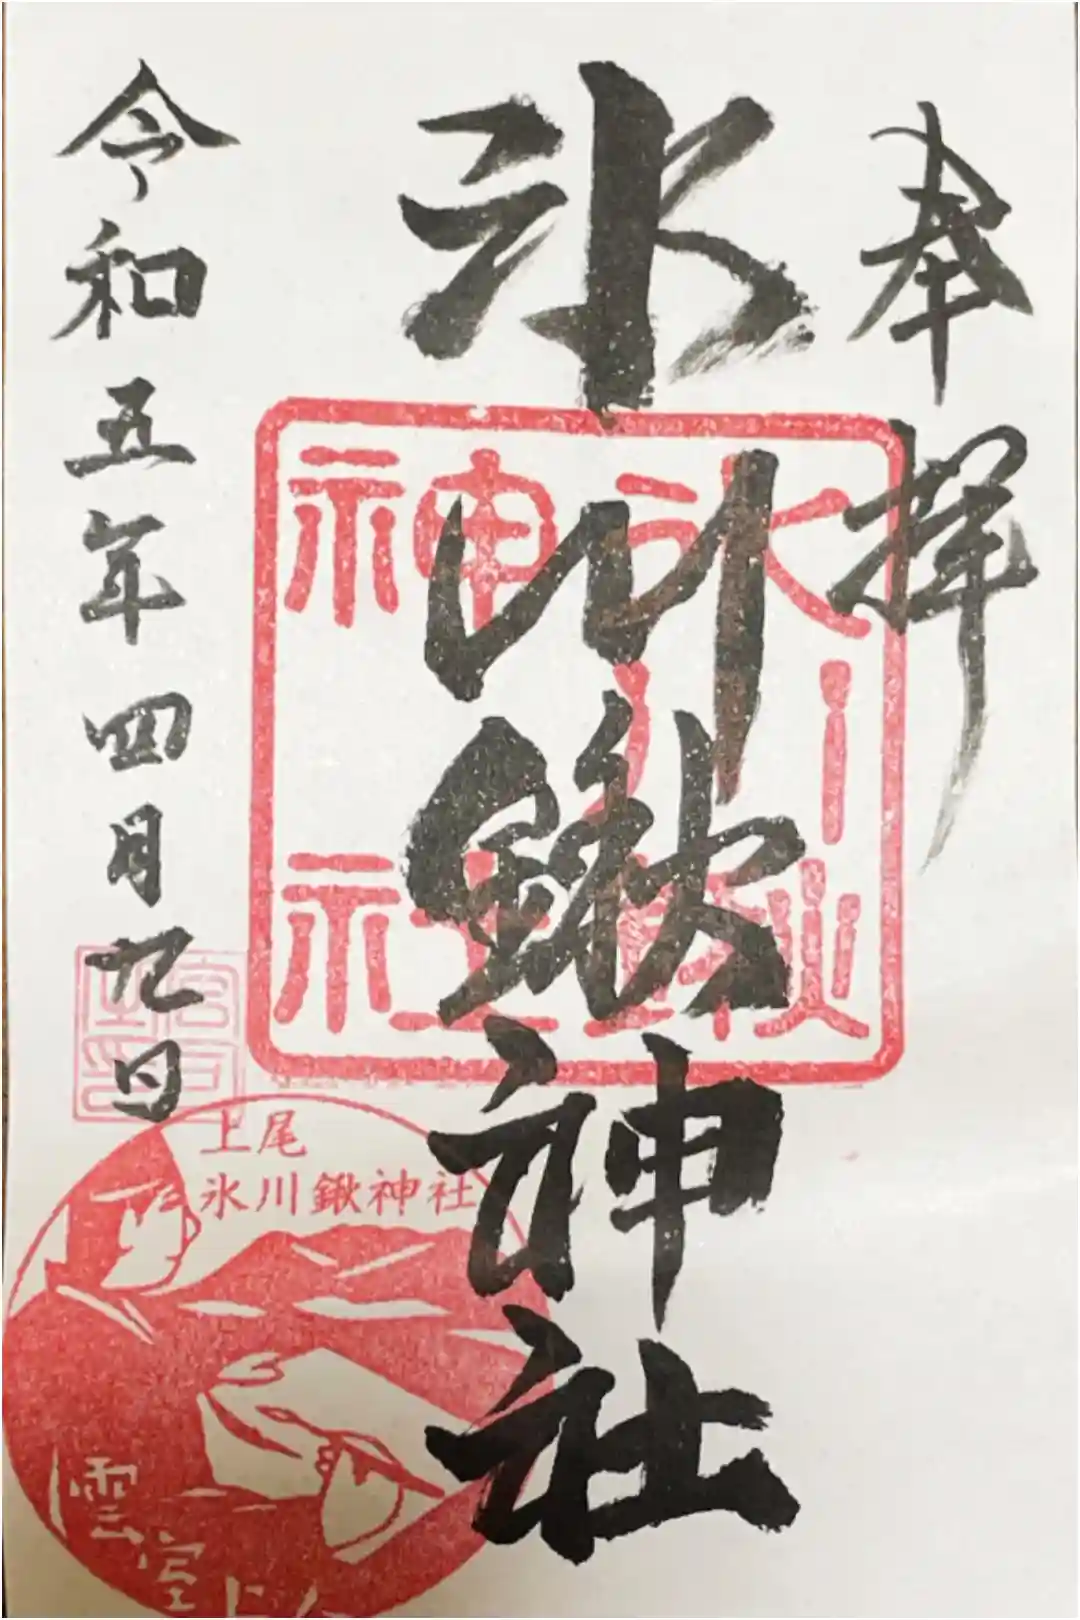 奉拝
氷川鍬神社
令和五年四月九日
氷川
鍬
神社
上尾
氷川鍬神社
雲室上人